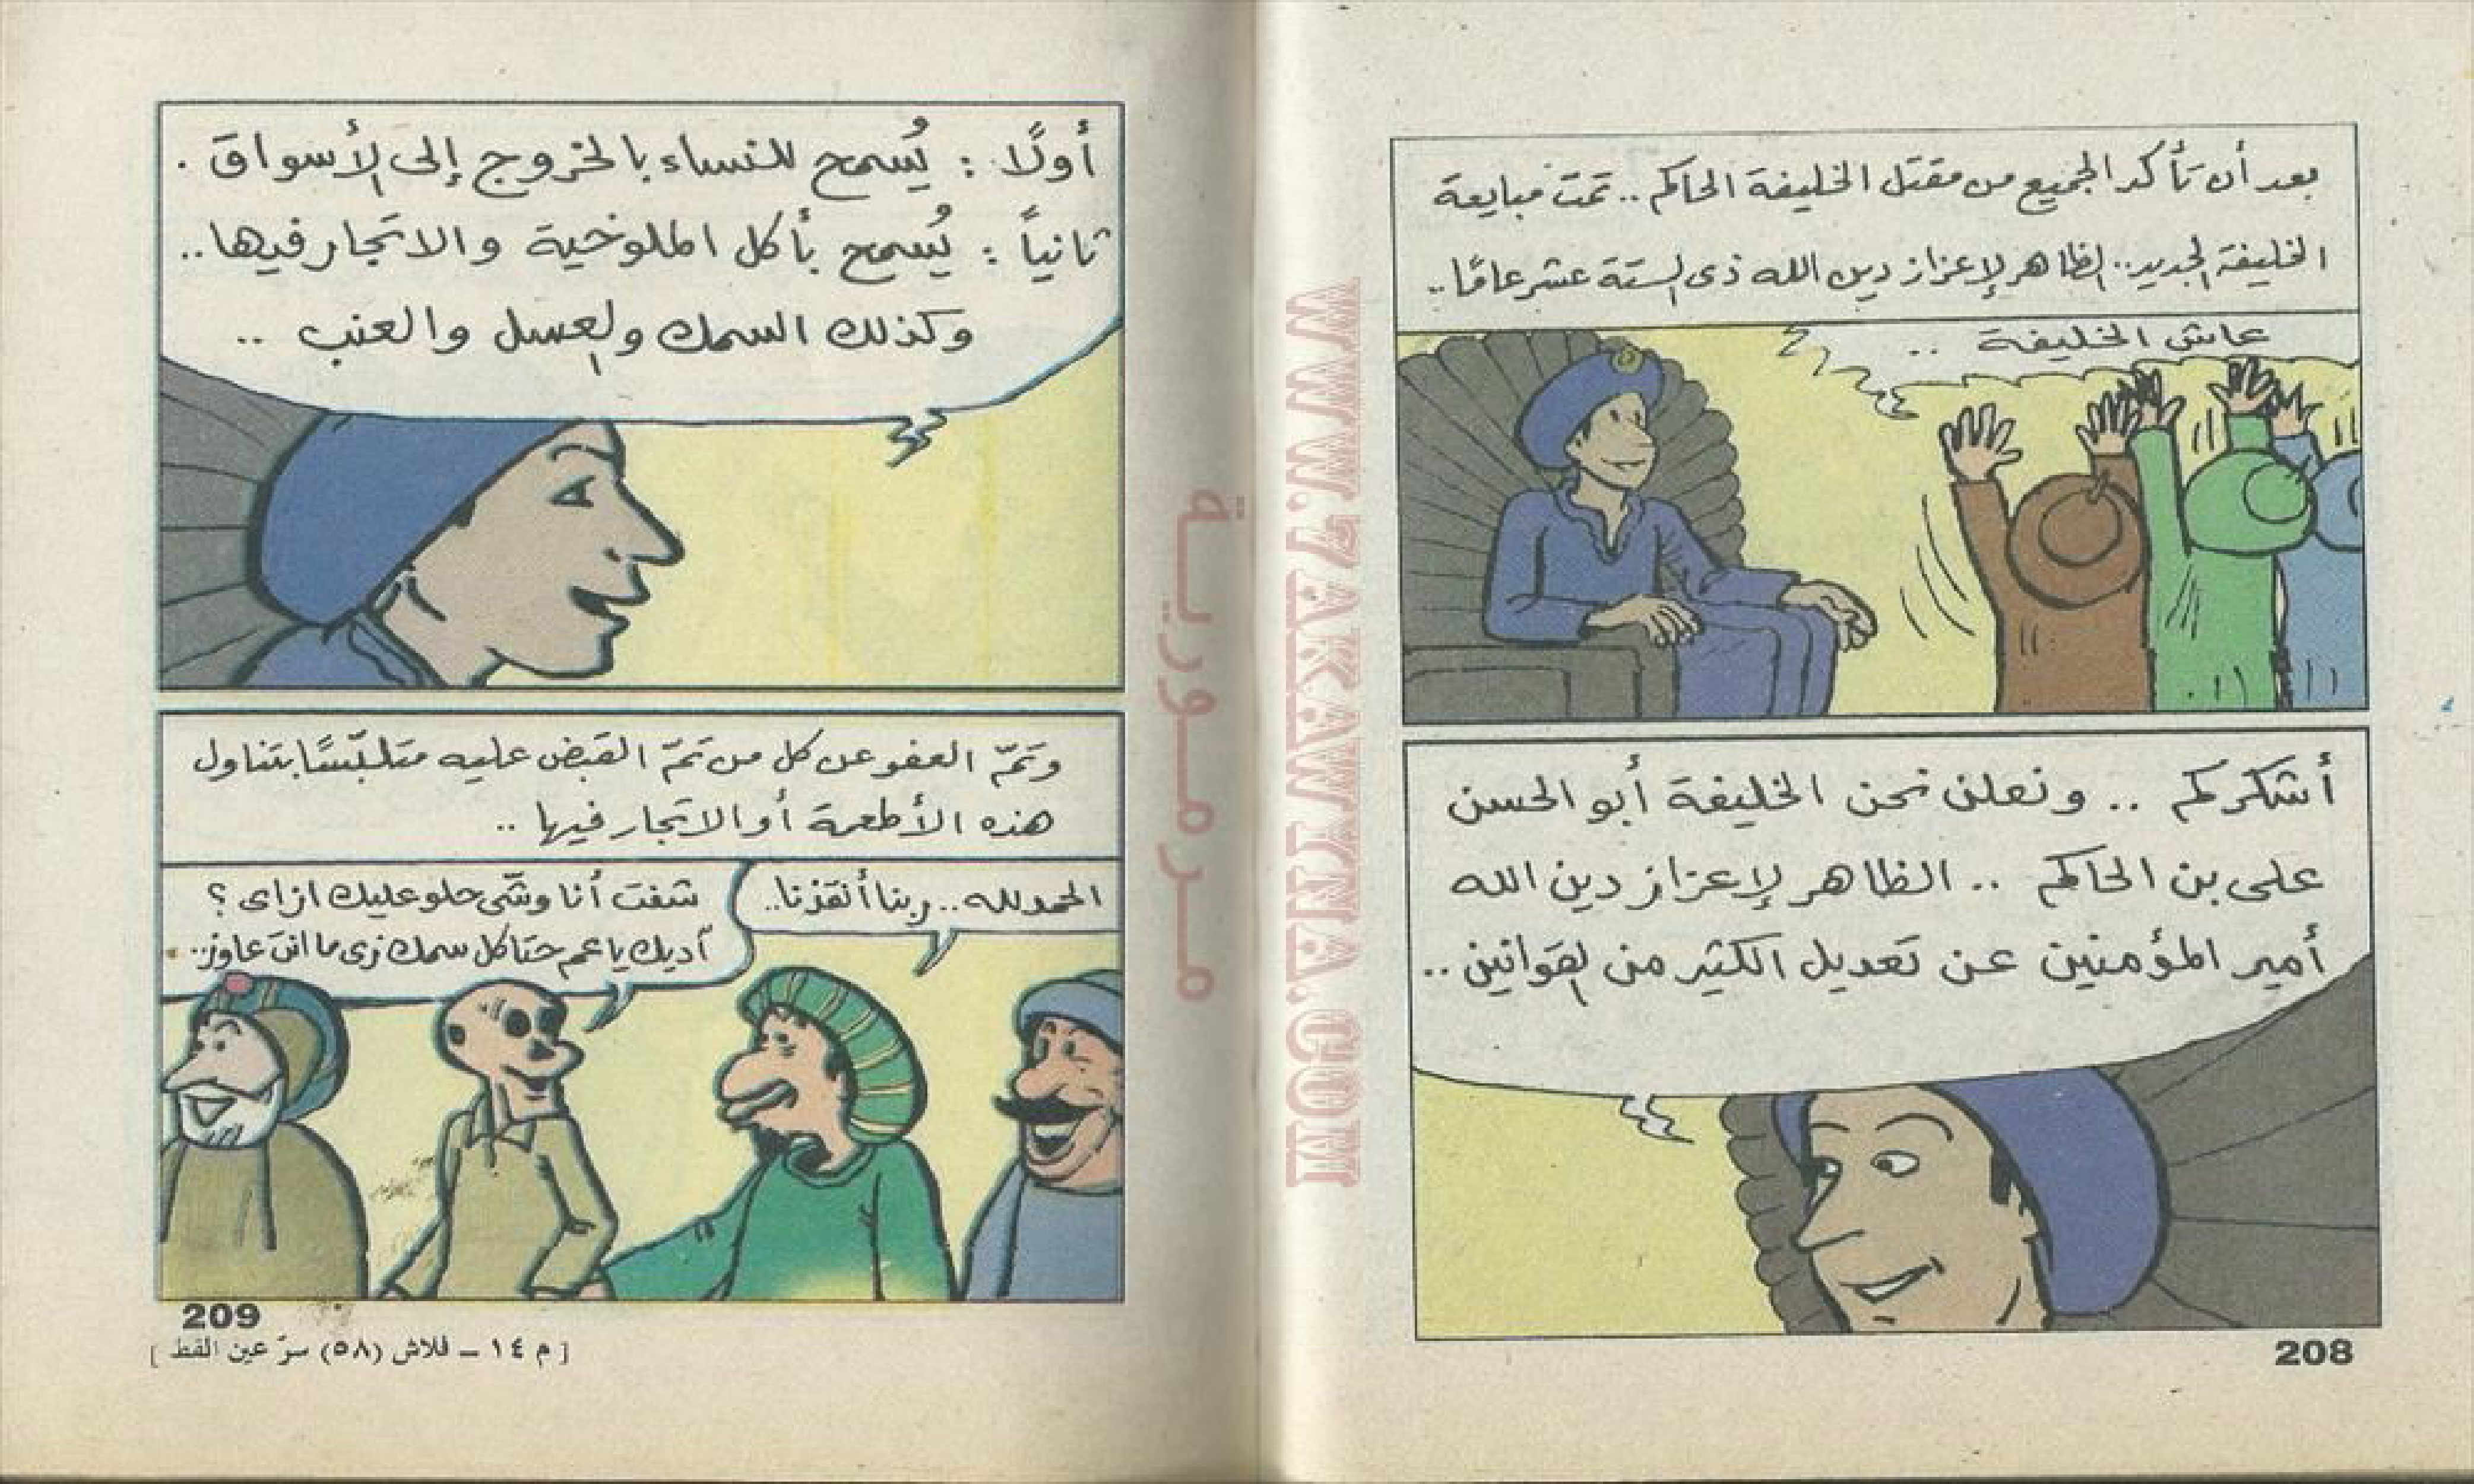 بعد أن تأكد الجميع من مقتل الخليفة الحاكم .. تمت مبايعة
الخليفة الجديد .. الظاهر لإعزاز دين الله ذى الستة عشر عامًا ..
عاش الخليفة ..
أشكركم .. ونعلن نحن الخليفة أبو الحسن
على بن الحاكم .. الظاهر لإعزاز دين الله
أمير المؤمنين عن تعديل الكثير من القوانين ..
208
أولًا : يُسمح للنساء بالخروج إلى الأسواق .
ثانياً : يُسمح بأكل الملوخية والاتجار فيها ..
وكذلك السمك والعسل والعنب ..
وتمّ العفو عن كل من تمّ القبض عليه متلبّسًا بتناول
هذه الأطعمة أو الاتجار فيها ..
الحمد لله .. ربنا أنقذنا ..
شفت أنا وشّى حلو عليك ازاى ؟
أديك يا عم حتاكل سمك زى ما انت عاوز ..
209
[ م ١٤ – فلاش (٥٨) سرّ عين القط ]
مرمورية
WWW.7AKAWINNA.COM